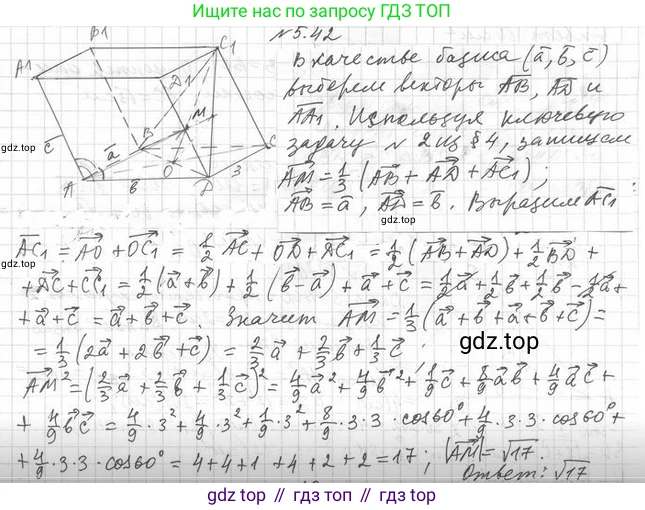 Ищет не по запросу ГДЗ ТОП
№5.42
В качестве базиса (a̅, b̅, c̅)
выберем векторы AB, AD и
AA1. Используя ключевую
задачу №2 из §4, запишем
AM = 1/3 (AB + AD + AC1);
AB = a, AD = b. Выразим AC1
B1
C1
A1
D1
M
B
C
A
O
D
c
a
b
3
gdz.top
gdz.top
AC1 = AO + OC1 = 1/2 AC + OD + DC1 = 1/2 (AB + AD) + 1/2 BD +
+ DC + CC1 = 1/2 (a + b) + 1/2 (b - a) + a + c = 1/2 a + 1/2 b + 1/2 b - 1/2 a +
+ a + c = a + b + c. Значит AM = 1/3 (a + b + a + b + c) =
= 1/3 (2a + 2b + c) = 2/3 a + 2/3 b + 1/3 c
gdz.top
gdz.top
AM² = (2/3 a + 2/3 b + 1/3 c)² = 4/9 a² + 4/9 b² + 1/9 c² + 8/9 ab + 4/9 ac +
+ 4/9 bc = 4/9 · 3² + 4/9 · 3² + 1/9 · 3² + 8/9 · 3 · 3 · cos60° + 4/9 · 3 · 3 · cos60° +
+ 4/9 · 3 · 3 · cos60° = 4 + 4 + 1 + 4 + 2 + 2 = 17; |AM| = √17.
Ответ: √17
gdz.top // gdz.top // gdz.top // gdz.top